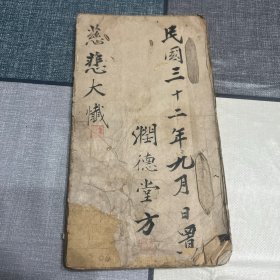 民國三十二年九月日置
潤德堂方
慈悲大懺